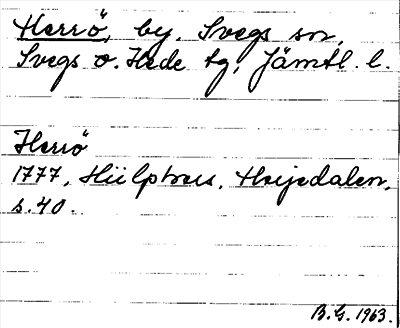 Herrö, by. Svegs sn,
Svegs o. Hede tg, Jämtl. l.
Herrö
1777, Hülphers, Herjedalen,
s. 40.
B.G. 1963.